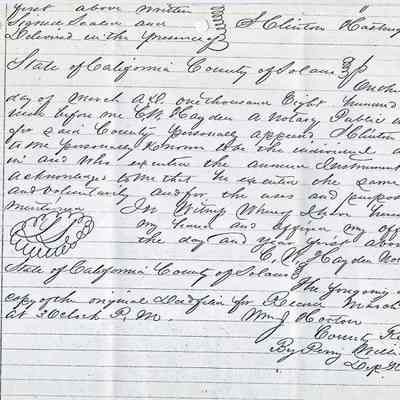 first above written
Signed Sealed and
Delivered in the presence of
S Clinton Hasting
State of California County of Solano
On the
day of March A.D. one thousand Eight hund
before me C. W. Hayden a Notary Public
for said County personally appeared S Clinton
to me personally known to be the individual
in and who executed the annexed Instrument
acknowledged to me that he executed the same
and voluntarily and for the uses and purposes
mentioned In Witness Whereof I have here
my hand and affixed my off
the day and year first abov
C. W. Hayden No
State of California County of Solano
The foregoing
copy of the original Deed filed for Record March
at 3 Oclock P. M.
Wm J. Horton
County Re
By Perry Willi
Dep